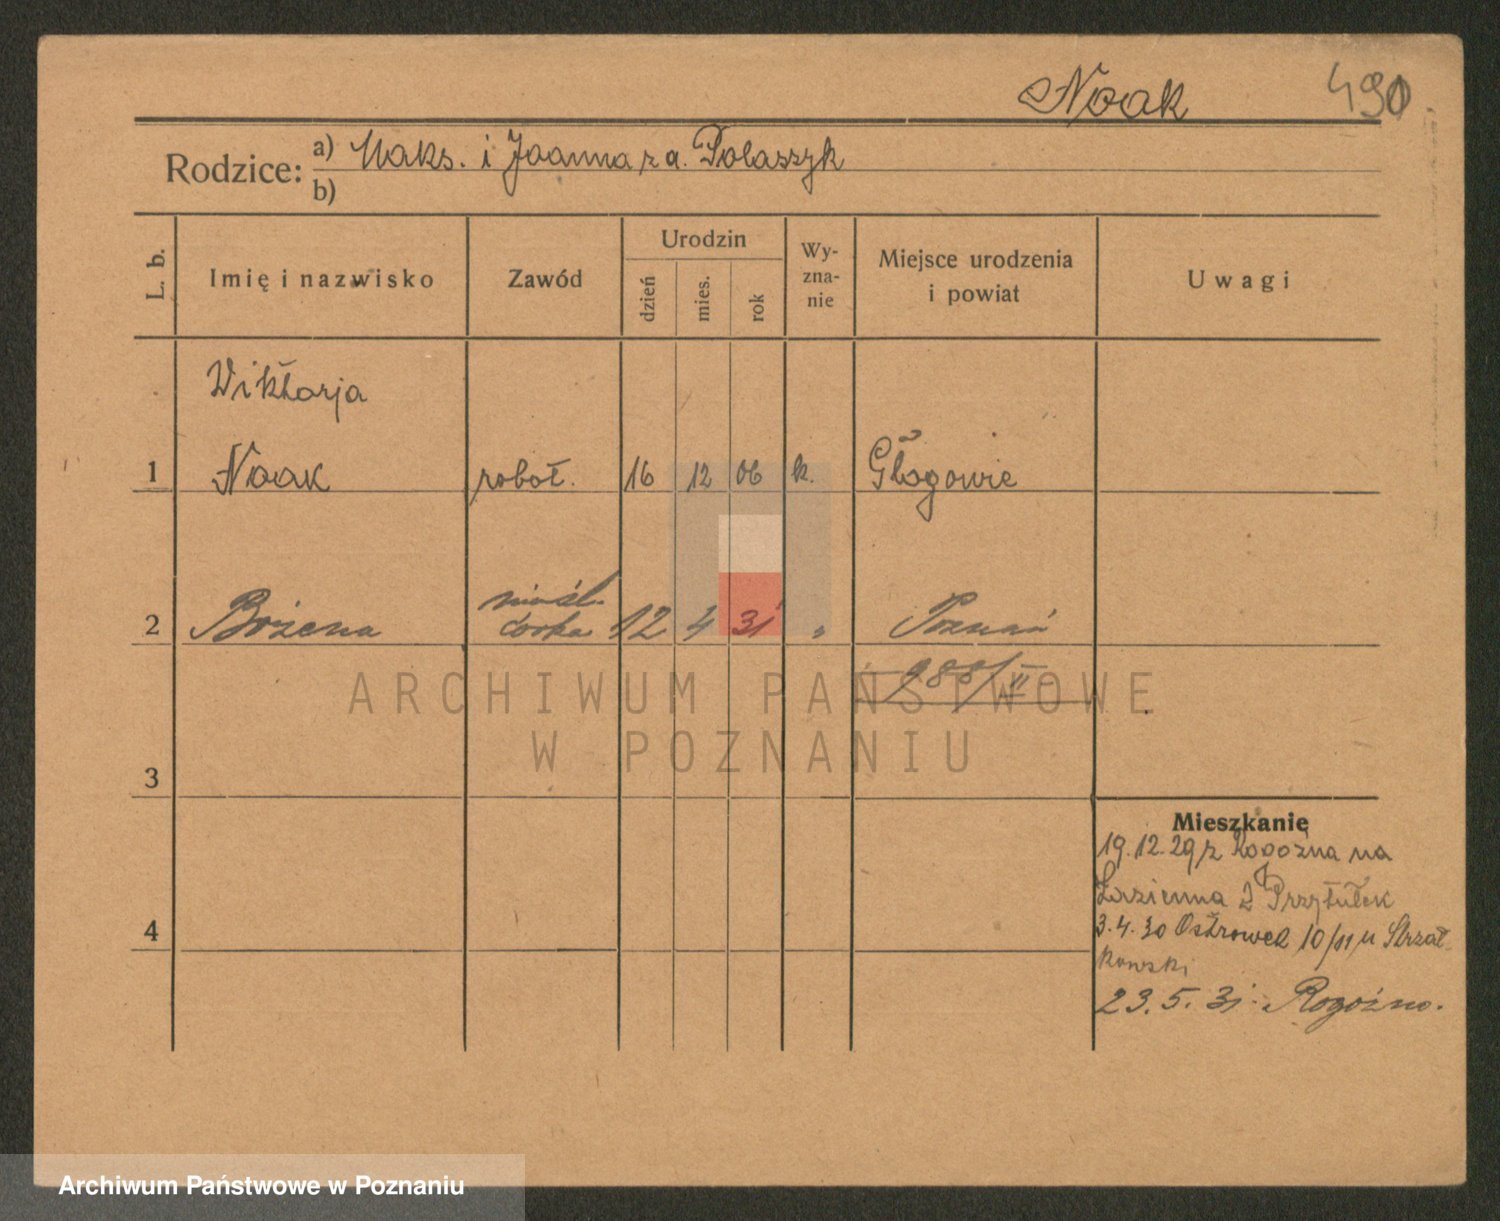 Noak 490
Rodzice: a) Maks. i Joanna z d. Polaszyk
b)
L. b.
Imię i nazwisko
Zawód
Urodzin
dzień
mies.
rok
Wy-
zna-
nie
Miejsce urodzenia
i powiat
Uwagi
Wiktorja
1 Noak robot. 16 12 06 k. Głogowie
nieśl.
2 Bożena córka 12 4 31 " Poznań
988/II
ARCHIWUM PAŃSTWOWE
W POZNANIU
3
Mieszkanie
19.12.29 z Rogoźna na
Łazienna 2 Przytułek
4
3.4.30 Ostrowek 10/11 u Strzał-
kowski
23.5.31 Rogoźno.
Archiwum Państwowe w Poznaniu